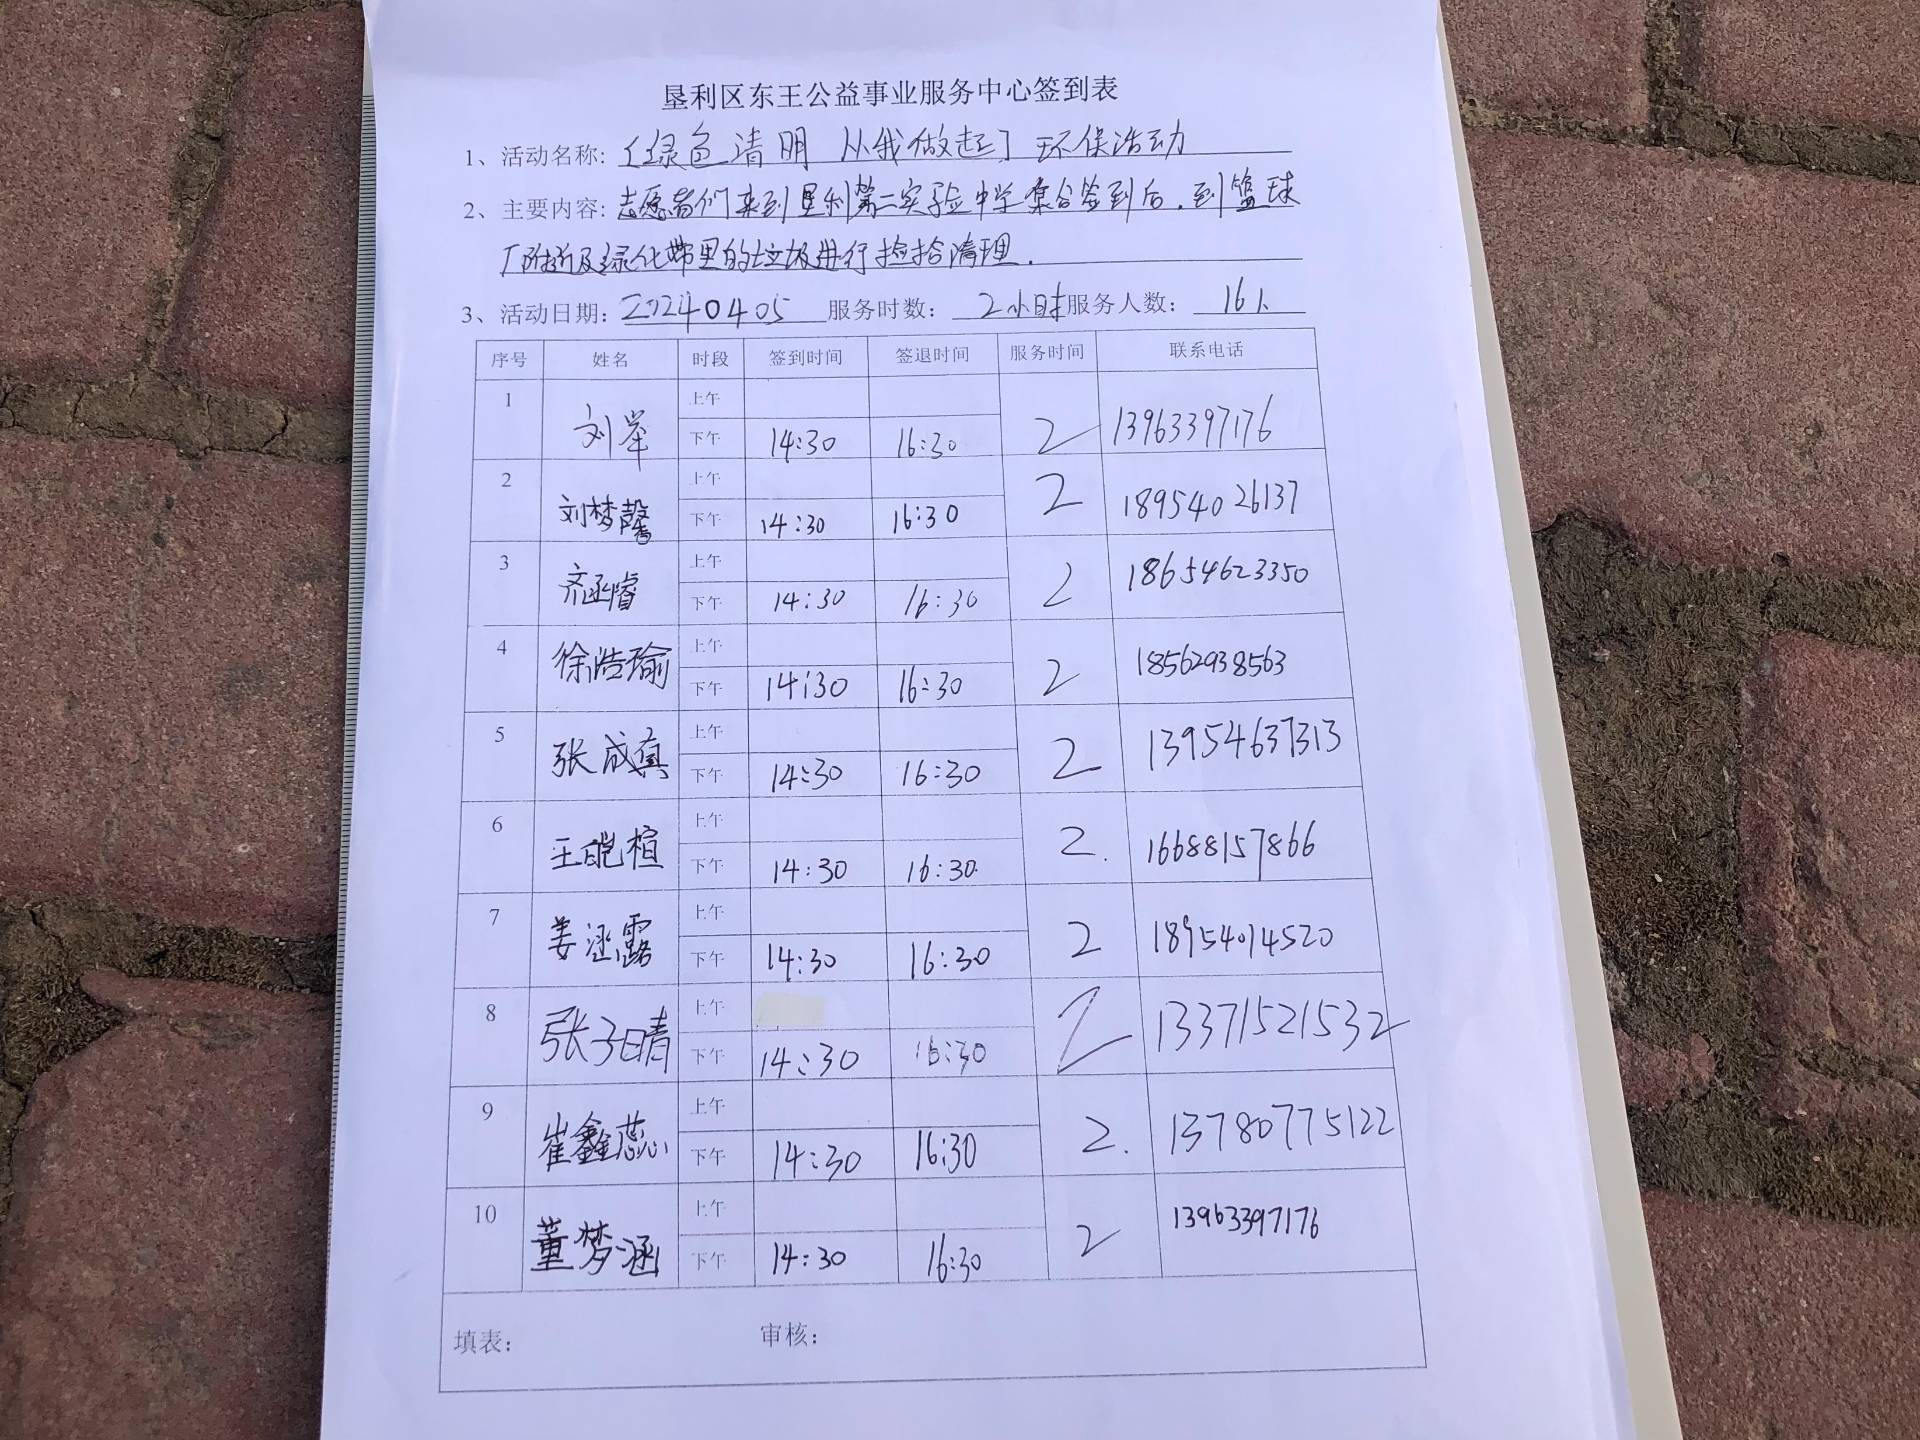 垦利区东王公益事业服务中心签到表
1、活动名称: 〔绿色清明 从我做起〕环保活动
2、主要内容: 志愿者们来到垦利第二实验中学集合签到后.到篮球
厂附近及绿化带里的垃圾进行捡拾清理.
3、活动日期: 20240405 服务时数: 2小时 服务人数: 16人
序号 姓名 时段 签到时间 签退时间 服务时间 联系电话
1 刘举 上午
下午 14:30 16:30 2 13963397176
2 刘梦馨 上午
下午 14:30 16:30 2 18954026137
3 齐函睿 上午
下午 14:30 16:30 2 18654623350
4 徐浩瑜 上午
下午 14:30 16:30 2 18562938563
5 张成真 上午
下午 14:30 16:30 2 13954637313
6 王皑楦 上午
下午 14:30 16:30 2. 16688157866
7 姜涵露 上午
下午 14:30 16:30 2 18954014520
8 张子晴 上午
下午 14:30 16:30 2 13371521532
9 崔鑫蕊 上午
下午 14:30 16:30 2. 13780775122
10 董梦涵 上午
下午 14:30 16:30 2 13963397176
填表: 审核: